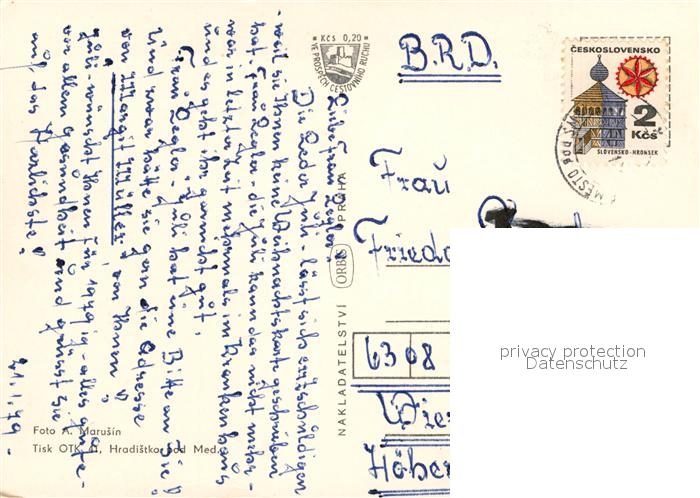 Liebe Frau Ziegler!
Die Leder Juli - lässt sich entschuldigen
weil sie Ihnen keine Weihnachtskarte geschrieben
hat. Frau Ziegler - die Juli kann das nicht mehr -
war in letzter Zeit mehrmals im Krankenhaus
und es geht ihr gar nicht gut.
Frau Ziegler - Juli hat eine Bitte an Sie!
Und zwar hätte sie gern die Adresse
von Margit Müller, von Ihnen!
Juli - wünscht Ihnen für 1979 ig - alles Gute -
vor allem Gesundheit und grüsst Sie
auf das Herzlichste!
31.1.79.
Foto A. Marušín
Tisk OTK 41, Hradištko pod Med.
NAKLADATELSTVÍ
ORBIS
PRAHA
Kčs 0,20
VE PROSPĚCH CESTOVNÍHO RUCHU
B.R.D.
ČESKOSLOVENSKO
2
Kčs
SLOVENSKO-HRONSEK
MĚSTO
Frau
Frieda
6308
Höher
privacy protection
Datenschutz